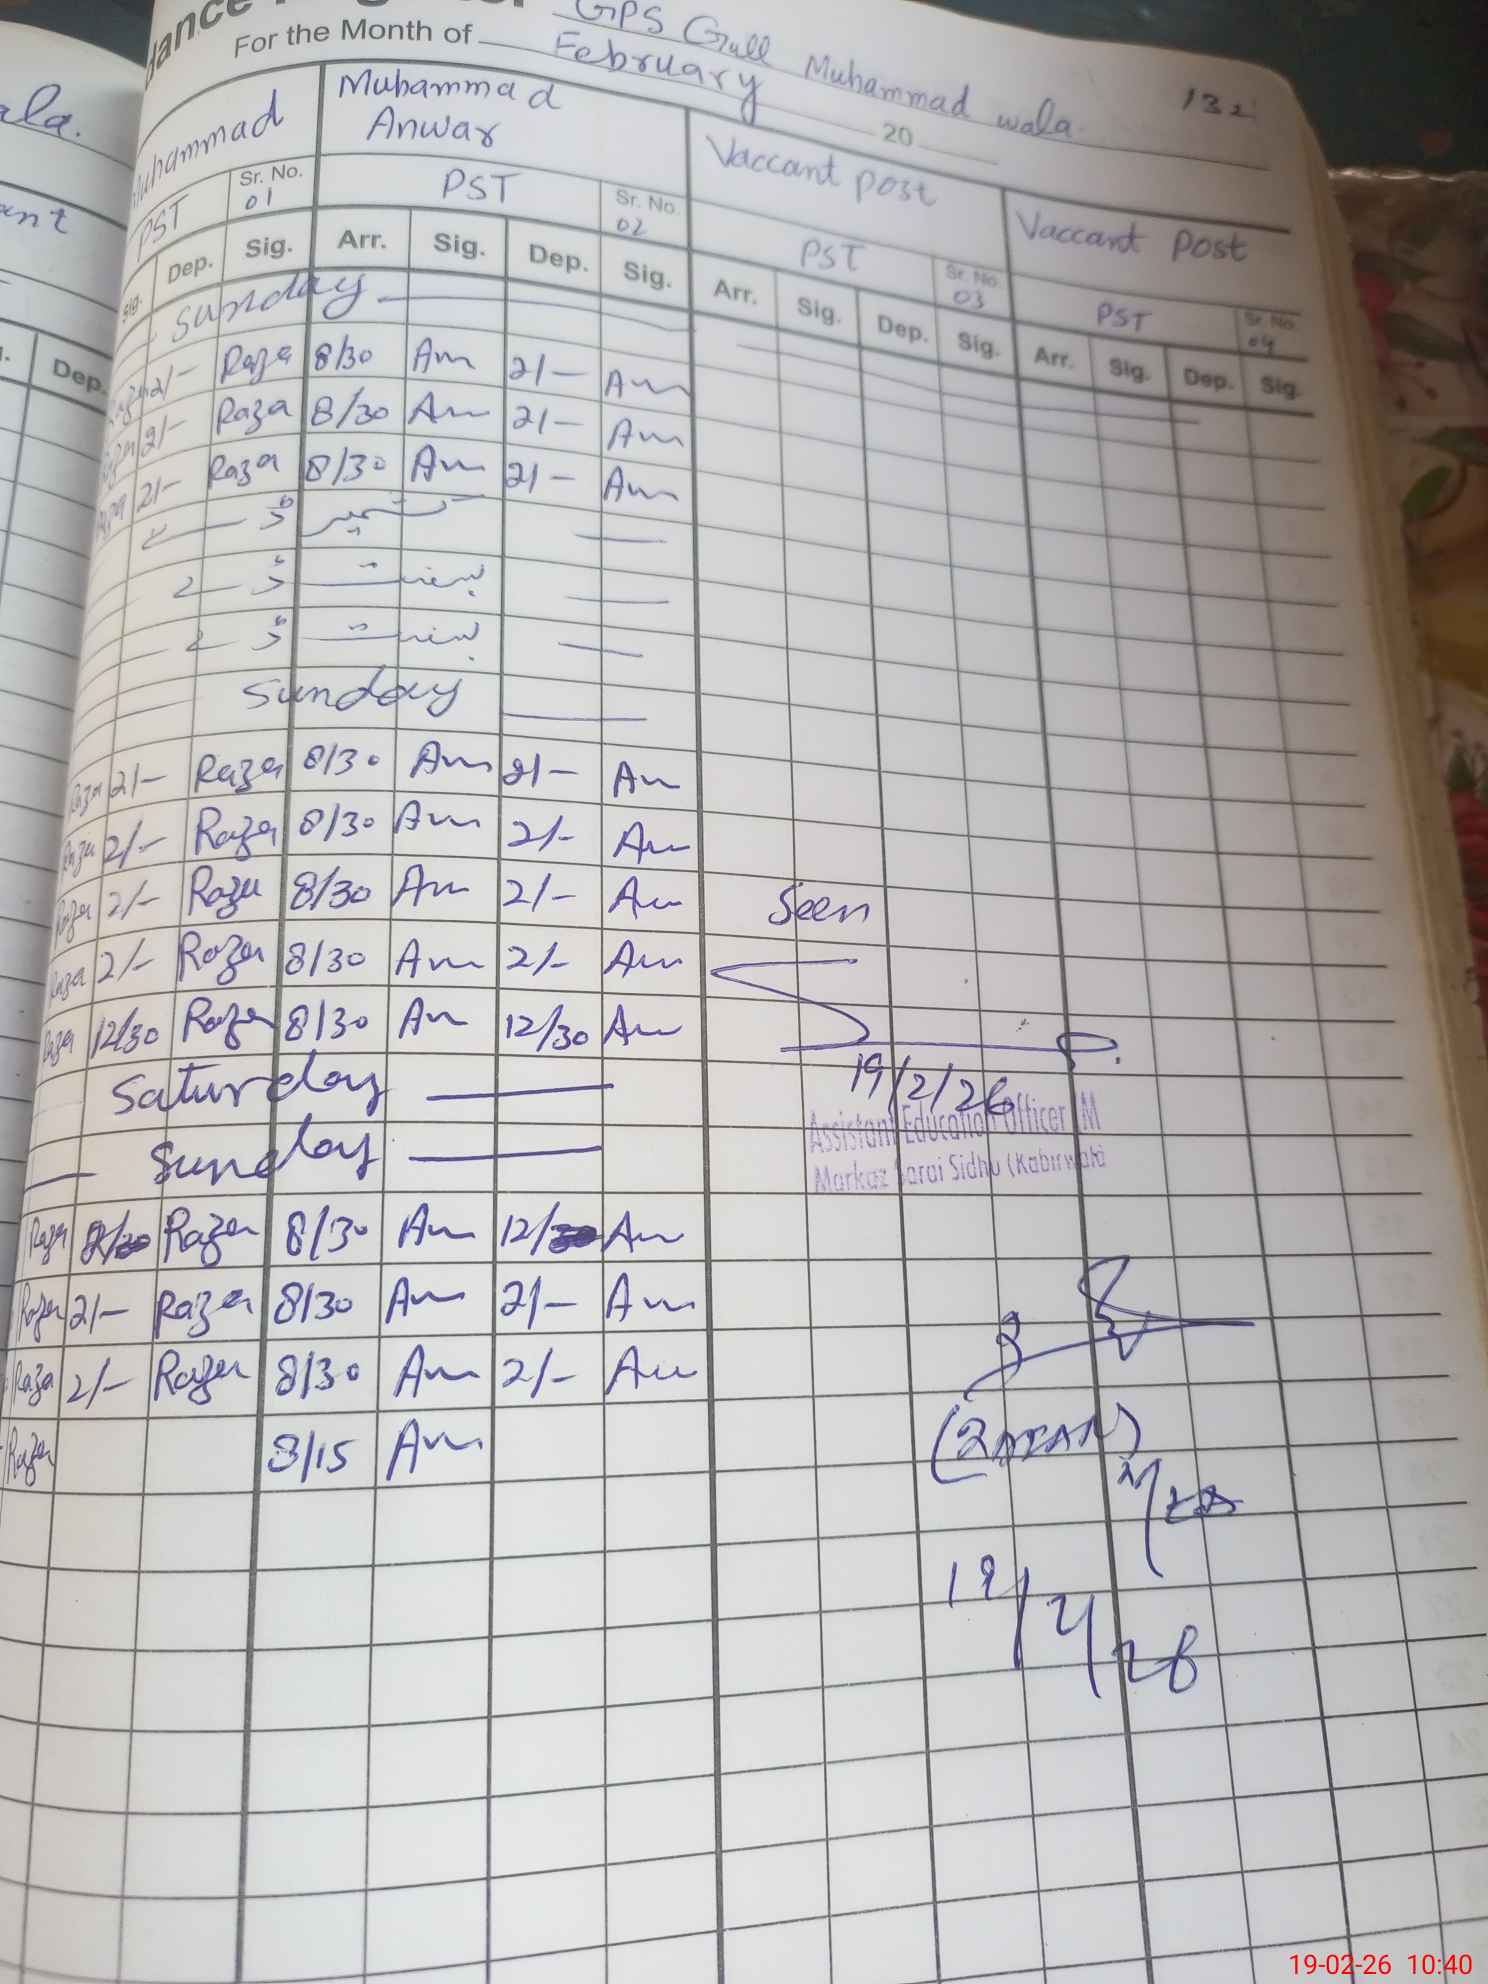 GPS Gull Muhammad wala.
132
For the Month of February 20
Muhammad
Muhammad Anwar
Vaccant post
Vaccant post
PST Sr. No. 01
PST Sr. No. 02
PST Sr. No. 03
PST Sr. No. 04
Sig. Dep. Sig. Arr. Sig. Dep. Sig. Arr. Sig. Dep. Sig. Arr. Sig. Dep. Sig.
Sunday
2/- Raza 8/30 Am 2/- Am
Raza 2/- Raza 8/30 Am 2/- Am
Raza 2/- Raza 8/30 Am 2/- Am
کشمیر ڈے
بسنت ڈے
بسنت ڈے
Sunday
Raza 2/- Raza 8/30 Am 2/- Am
Raza 2/- Raza 8/30 Am 2/- Am
Raza 2/- Raza 8/30 Am 2/- Am
Raza 2/- Raza 8/30 Am 2/- Am
Raza 12/30 Raza 8/30 Am 12/30 Am
Saturday
Sunday
Raza Raza 8/30 Am 12/30 Am
Raza 2/- Raza 8/30 Am 2/- Am
Raza 2/- Raza 8/30 Am 2/- Am
Raza 8/15 Am
Seen
19/2/26
Assistant Education Officer (M
Markaz Sarai Sidhu (Kabirwala)
19/2/26
ala.
Dep.
19-02-26 10:40